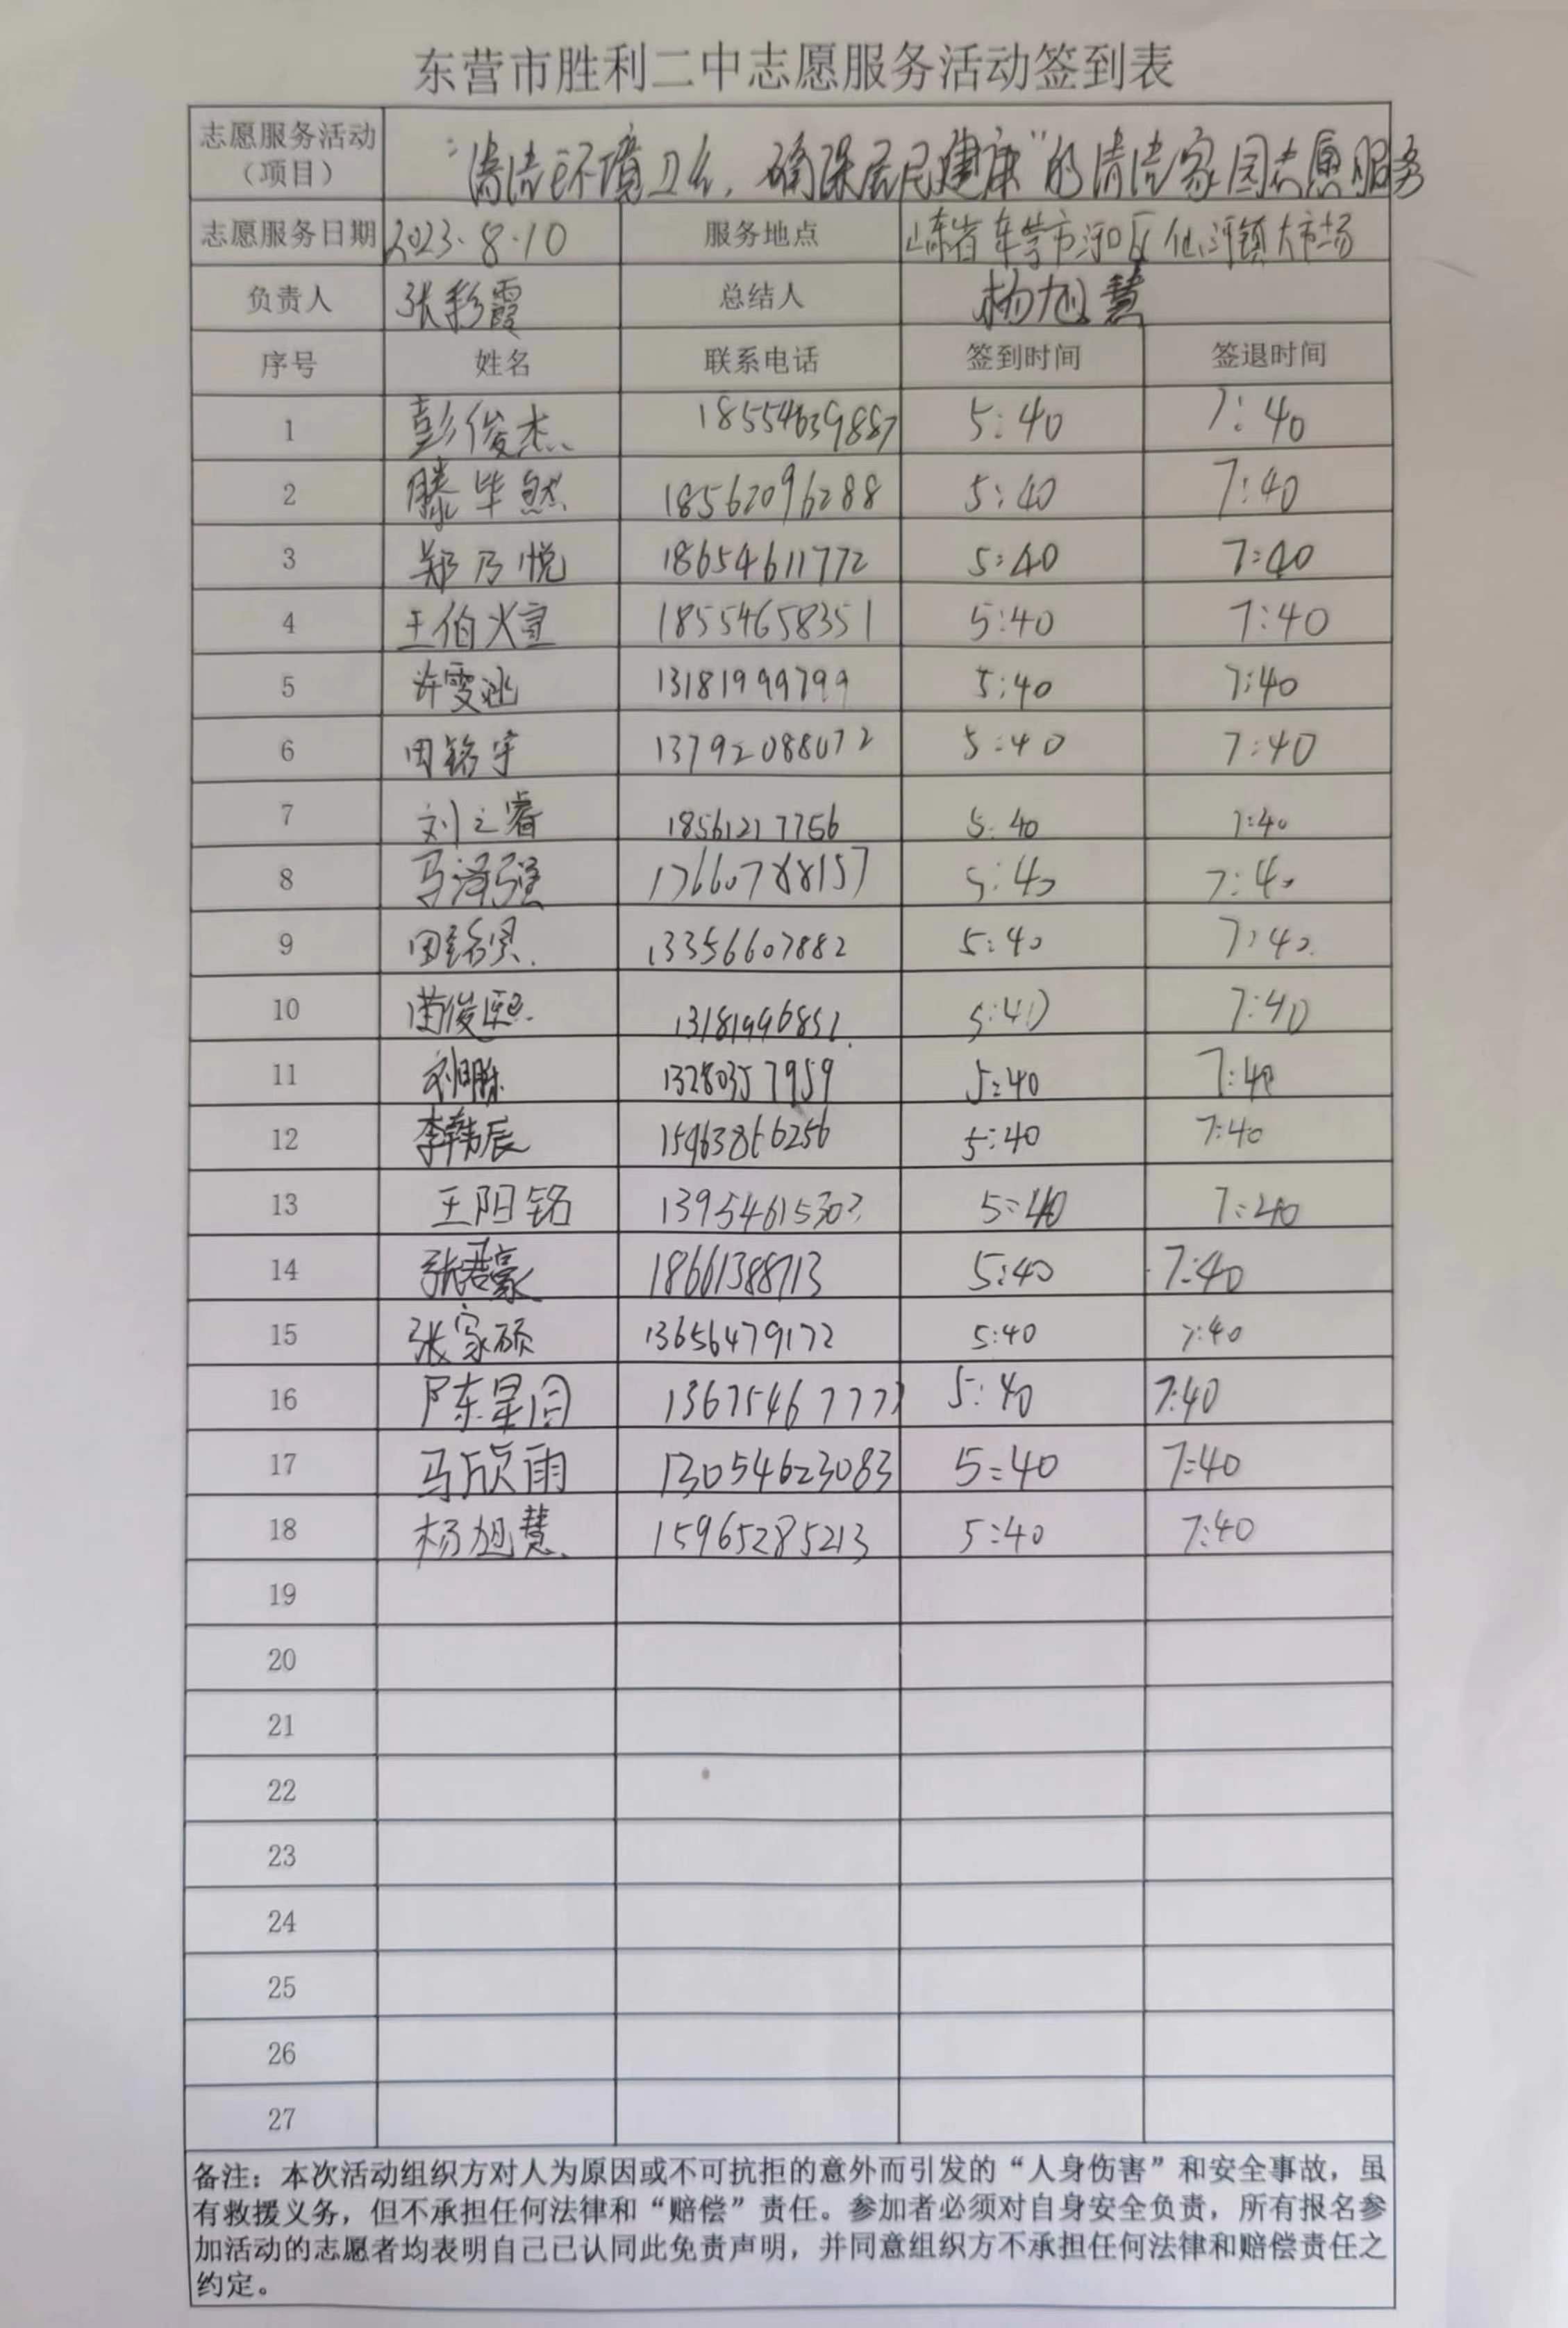 东营市胜利二中志愿服务活动签到表
志愿服务活动（项目） “清洁环境卫生，确保居民健康”的清洁家园志愿服务
志愿服务日期 2023.8.10 服务地点 山东省东营市河口区仙河镇大市场
负责人 张彩霞 总结人 杨旭慧
序号 姓名 联系电话 签到时间 签退时间
1 彭俊杰 18554639887 5:40 7:40
2 滕毕然 18562096288 5:40 7:40
3 郑乃悦 18654611772 5:40 7:40
4 王伯煊 18554658351 5:40 7:40
5 许雯涵 13181999799 5:40 7:40
6 田铭宇 13792088072 5:40 7:40
7 刘之睿 18561217756 5:40 7:40
8 马泽强 17660788157 5:40 7:40
9 田铭贤 13356607882 5:40 7:40
10 俊熙 13181996851 5:40 7:40
11 13280357959 5:40 7:40
12 李韩辰 15963866256 5:40 7:40
13 王阳铭 13954615303 5:40 7:40
14 张君豪 18661388713 5:40 7:40
15 张家硕 13656479172 5:40 7:40
16 陈星同 13675467777 5:40 7:40
17 马欣雨 13054623083 5:40 7:40
18 杨旭慧 15965285213 5:40 7:40
19
20
21
22
23
24
25
26
27
备注：本次活动组织方对人为原因或不可抗拒的意外而引发的“人身伤害”和安全事故，虽
有救援义务，但不承担任何法律和“赔偿”责任。参加者必须对自身安全负责，所有报名参
加活动的志愿者均表明自己已认同此免责声明，并同意组织方不承担任何法律和赔偿责任之
约定。